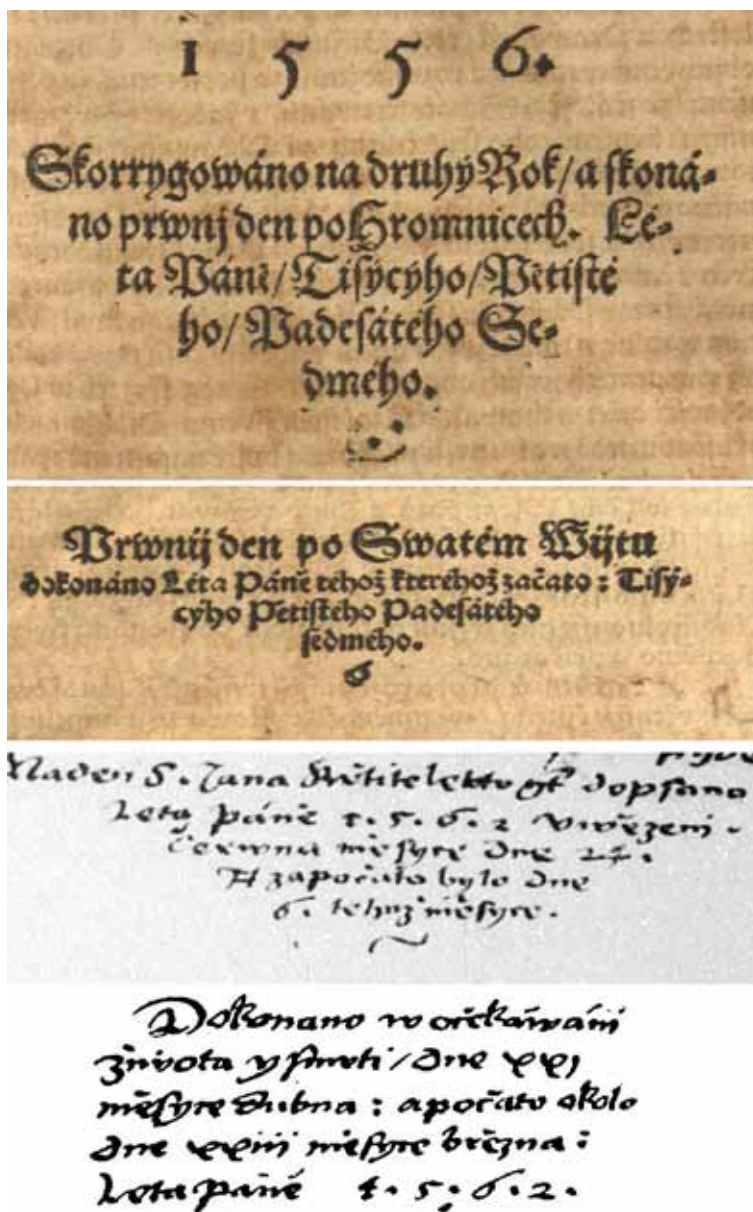 1 5 5 6.
Skorrygowáno na druhý Rok/ a skoná-
no prwnj den po Hromnicech. Lé-
ta Páně/ Tisýcýho/ Pětisté
ho/ Padesátého Se-
dmého.
Prwnij den po Swatém Wijtu
dokonáno Léta Páně téhož kteréhož začato: Tisý-
cýho Pětistého Padesátého
sedmého.
Na den S. Jana dopsano
Leta Páně 1. 5. 6. 2 v wězeni.
Čerwna měsyce dne 24.
A započato bylo dne
6. tehož měsyce.
Dokonano w očekáwánii
žiwota y smrti/ dne XXI
měsyce dubna: a počato okolo
dne XXIII měsyce března:
Leta Páně 1. 5. 6. 2.